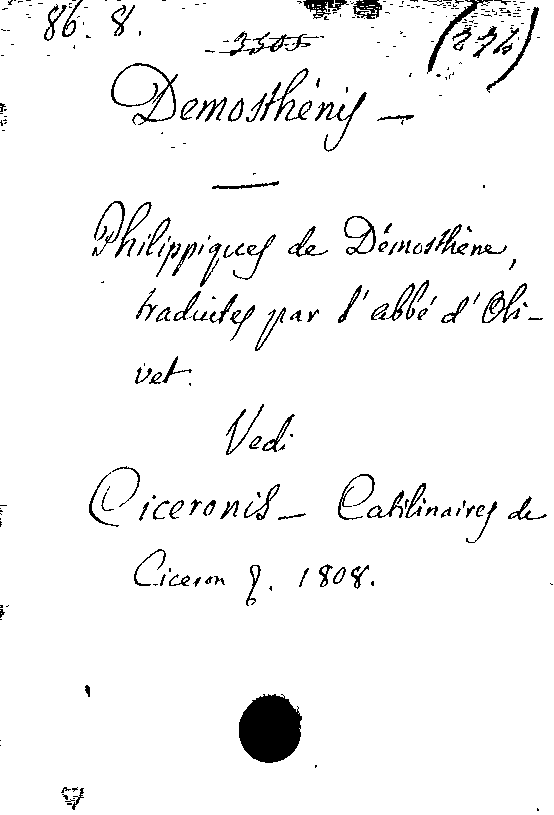 86. 8.
3505
(274)
Demosthenis —
Philippiques de Démosthène,
traduites par l'abbé d'Oli-
vet.
Vedi
Ciceronis — Catilinaires de
Ciceron &. 1808.